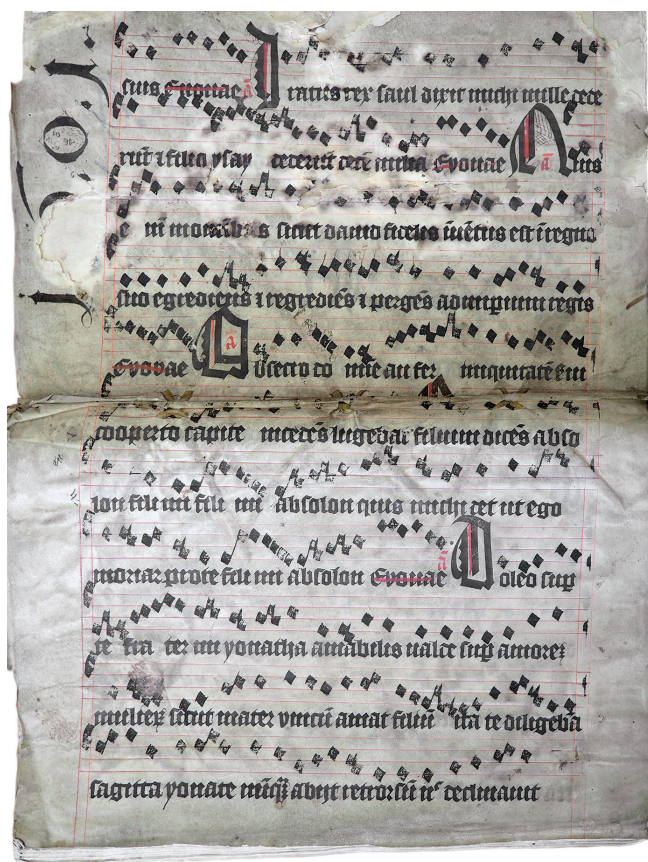 suis Evovae a Iratus rex saul dixit michi mille dede
rūt ⁊ filio ysay dederūt decē milia Evovae a Quis
e nī in omībus sicut dauid fidelis īuētus est ī regno
suo egrediens ⁊ regrediēs ⁊ pergēs ad impium regis
Evovae a Obsecro do mīe aufer iniquitatē
cooperto capite incedēs lugebat filium dicēs abso
lon fili mi fili mi absolon quis michi det ut ego
moriar pro te fili mi absolon Evovae a Doleo sup
te fra ter mi yonatha amabilis ualde sup amorez
mulierꝝ sicut mater vnicū amat filiū ita te diligeba
sagitta yonate nūqꝫ abijt retrorsū declinauit